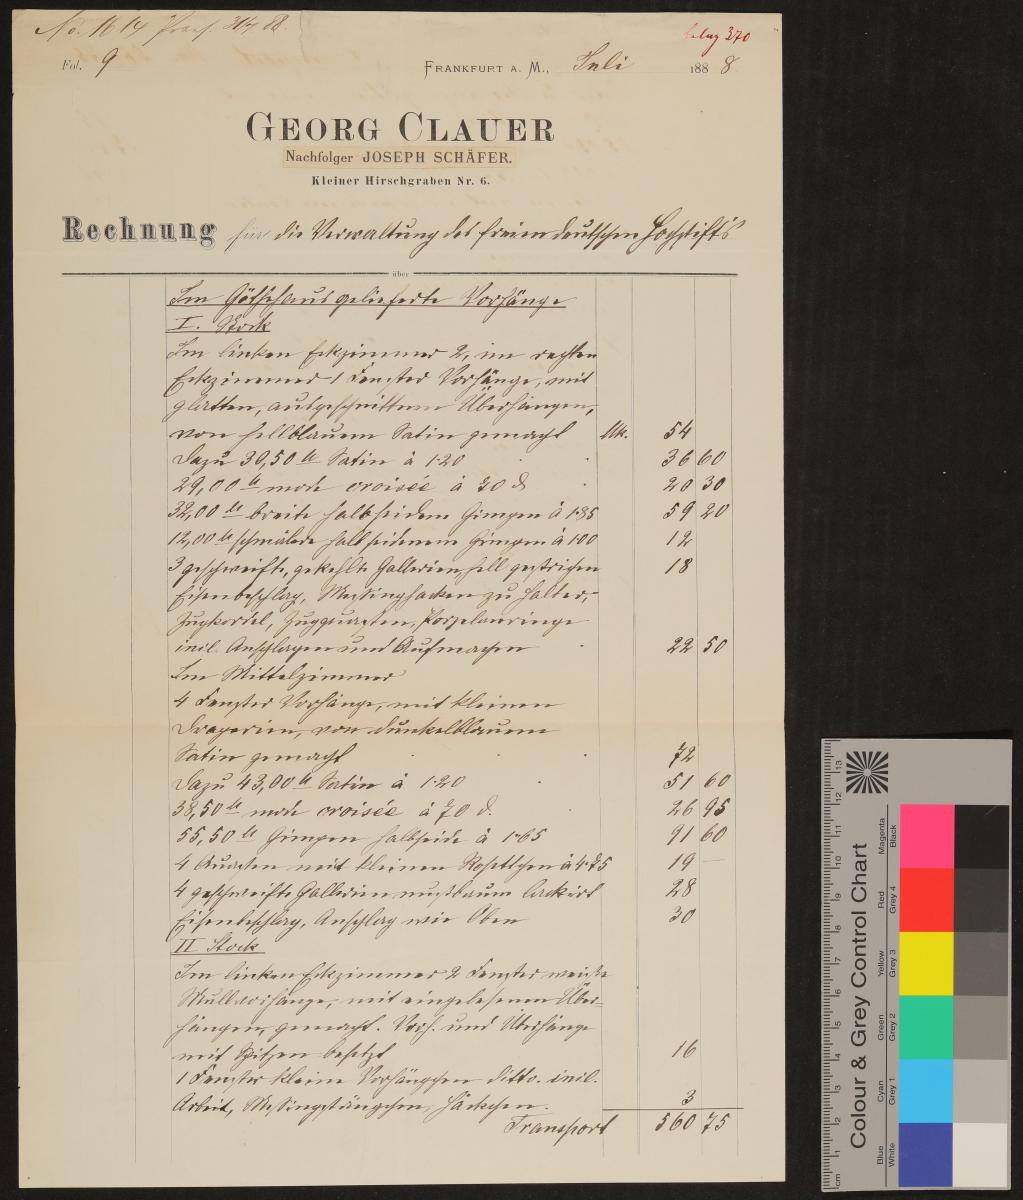 No. 1614 Praes. 31/7 88.
belag 370
Fol. 9 FRANKFURT A. M., Juli 1888
GEORG CLAUER
Nachfolger JOSEPH SCHÄFER.
Kleiner Hirschgraben Nr. 6.
Rechnung für die Verwaltung des freien deutschen Hochstifts
über
Im Göthehaus gelieferte Vorhänge
I. Stock
Im linken Eckzimmer 2, im rechten
Eckzimmer 1 Fenster Vorhänge, mit
glatten, ausgeschnittenen Überhängen,
von hellblauem Satin gemacht Mk. 54
Dazu 30,50 Satin à 1.20 36 60
29,00 mode croisée à 70 20 30
32,00 breite halbseidene Gimpen à 1.85 59 20
12,00 schmälere halbseidenen Gimpen à 1.00 12
3 geschweifte, gekehlte Gallerien hell gestrichen 18
Eisenbeschlag, Messinghacken zu Halter,
Zugkordel, Zugquasten, Porzelanringe
incl. Anschlagen und Aufmachen 22 50
Im Mittelzimmer
4 Fenster Vorhänge, mit kleinen
Draperien, von dunkelblauem
Satin gemacht 72
Dazu 43,00 Satin à 1.20 51 60
38,50 mode croisée à 70 26 95
55,50 Gimpen halbseide à 1.65 91 60
4 Quasten mit kleinen Rosettchen à 4.75 19 —
4 geschweifte Gallerien nussbaum lackirt 28
Eisenbeschlag, Anschlag wie Oben 30
II Stock
Im linken Eckzimmer 2 Fenster weisse
Mullvorhänge, mit eingelesenen Über-
hängen, gemacht. Vorh. und Überhänge
mit Spitzen besetzt 16
1 Fenster kleine Vorhängchen ditto. incl.
Arbeit, Messingstängchen, Häckchen. 3
Transport 560 75
Colour & Grey Control Chart
Blue Cyan Green Yellow Red Magenta
White Grey 1 Grey 2 Grey 3 Grey 4 Black
cm 1 2 3 4 5 6 7 8 9 10 11 12 13